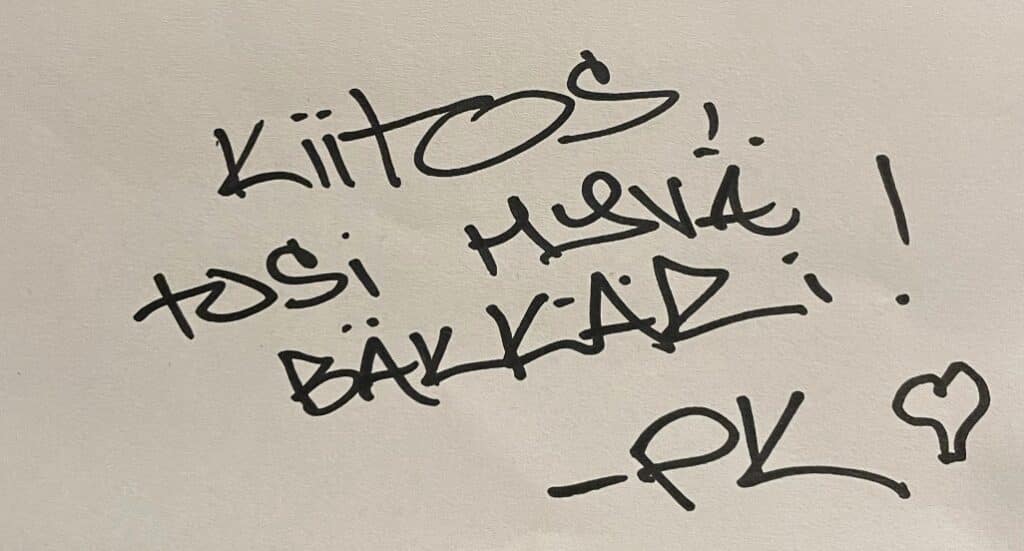 Kiitos,
tosi HYVÄ!
BÄKKÄRI!
-PK